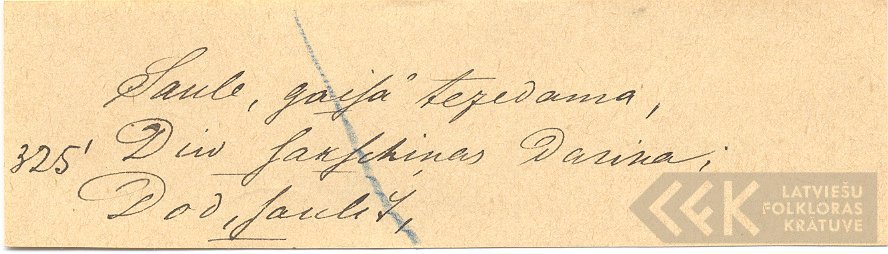 Saule, gaisâ tezedama,
325' Diw sakschinas darina;
Dod, saulit,
LATVIEŠU
FOLKLORAS
KRĀTUVE